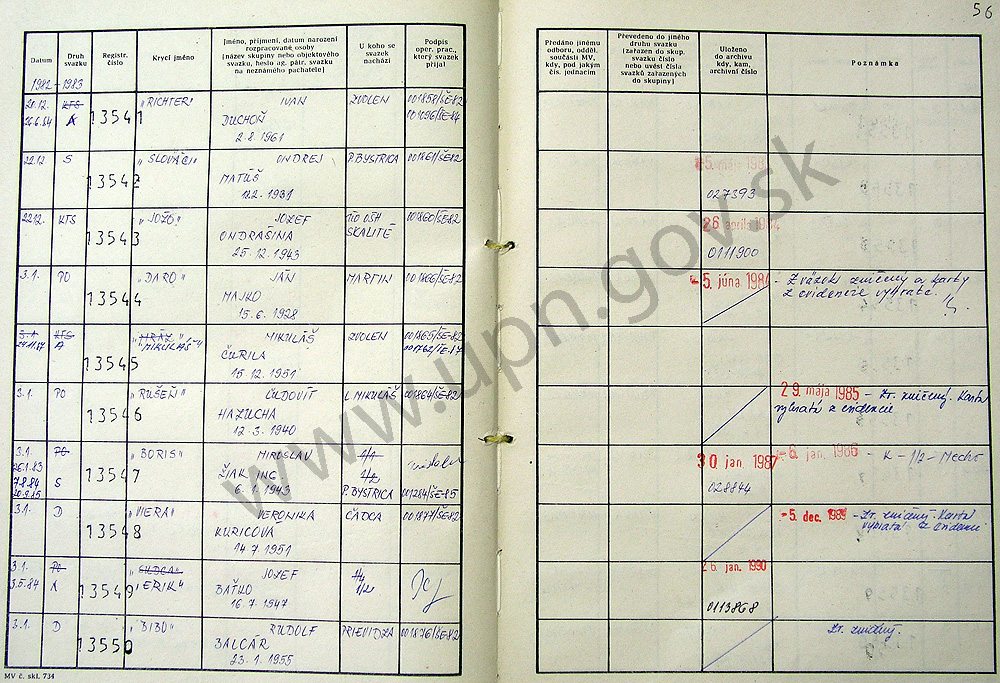 56
Datum
Druh svazku
Registr. číslo
Krycí jméno
Jméno, příjmení, datum narození rozpracované osoby
(název skupiny nebo objektového svazku, heslo ag. pátr. svazku na neznámého pachatele)
U koho se svazek nachází
Podpis oper. prac., který svazek přijal
Předáno jinému odboru, odděl. součásti MV, kdy, pod jakým čís. jednacím
Převedeno do jiného druhu svazku (zařazen do skup. svazku číslo nebo uvést čísla svazků zařazených do skupiny)
Uloženo do archivu kdy, kam, archivní číslo
Poznámka
1982-1983
21.12. KTS 13541 "RICHTER" IVAN ZVOLEN 001858/ŠE-82
26.6.84 A DUCHOŇ 001096/ŠE-84
2.8.1961
22.12 S 13542 "SLOVÁCI" ONDREJ P.BYSTRICA 001861/ŠE-82
MATÚŠ
12.2.1931
027393
22.12. KTS 13543 "JOŽO" JOZEF TÍO OSH SKALITÉ 001860/ŠE-82 26 apríla 1984
ONDRAŠINA
25.12.1943
0111900
3.1. PO 13544 "DARO" JÁN MARTIN 001866/ŠE-82 -5. júna 1984 - Zväzok zničený a karty
MAJKO z evidencie vybraté.
15.6.1928
3.1 KTS 13545 "MRÁZ" MIKULÁŠ ZVOLEN 001865/ŠE-82
A "MIKULÁŠ" ČURILA
15.12.1951
3.1. PO 13546 "RUŠEŇ" ĽUDOVÍT L MIKULÁŠ 001864/ŠE-82 29. mája 1985 - Zv. zničený. Karta
HAZUCHA vybratá z evidencie
12.3.1940
3.1. PO 13547 "BORIS" MIROSLAV 1/1 30 jan. 1987 -6. jan. 1986 - K - 1/2 -
26.1.83 ŽIAK ING. 1/2
7.8.84 S 6.1.1943 P. BYSTRICA 001284/ŠE-85
20.9.85
028844
3.1. D 13548 "VIERA" VERONIKA ČADCA 001877/ŠE-82 -5. dec. 1989 - Zv. zničený. Karta
KURICOVÁ vybratá z evidencie
14.7.1951
3.1. PO 13549 JOZEF 26. jan. 1990
3.5.84 A "ERIK" BAŤKO 1/2
16.7.1947
0113868
3.1. D 13550 "BIBO" RUDOLF PRIEVIDZA 001876/ŠE-82 Zv. zničený.
BALCÁR
23.1.1955
MV č. skl. 734
www.upn.gov.sk